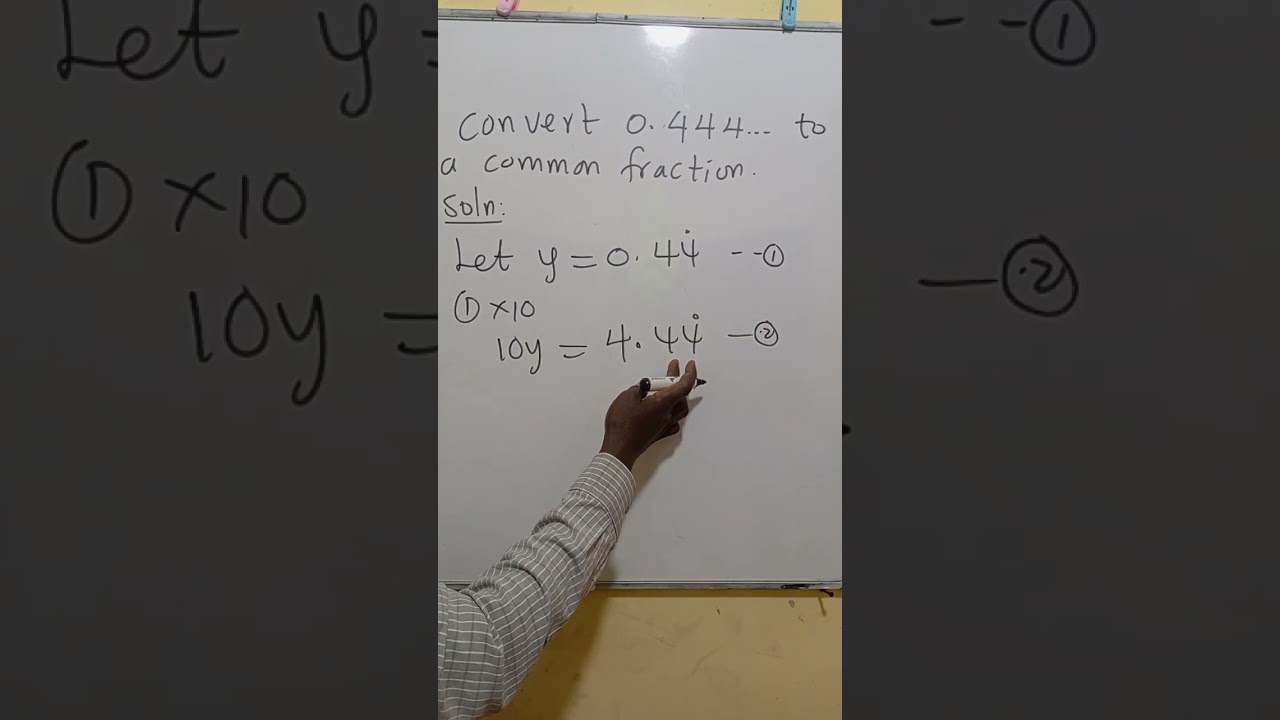 convert 0.444... to
a common fraction.
Soln:
Let y = 0.44̇ --①
① ×10
10y = 4.44̇ —②